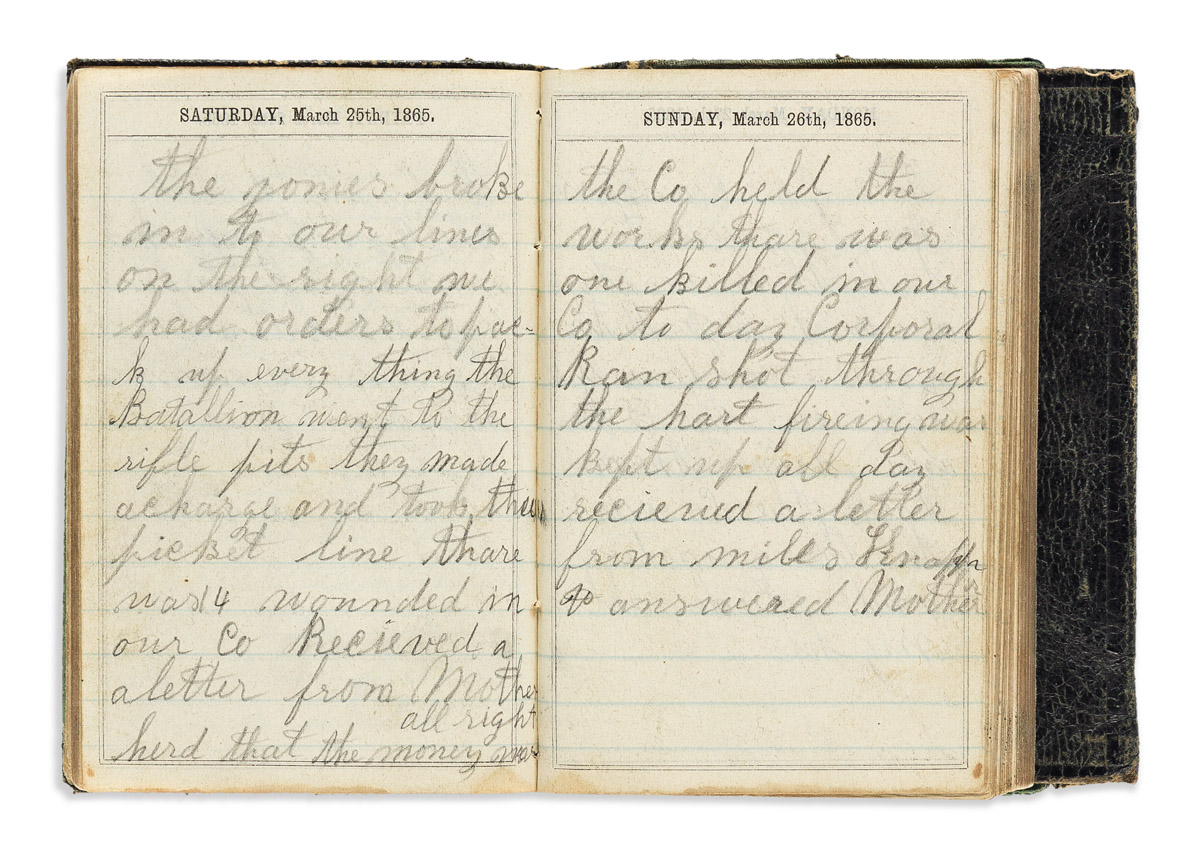 SATURDAY, March 25th, 1865.
the ponies broke
in to our lines
on the right we
had orders to pac-
k up every thing the
Batallion went to the
rifle pits they made
acharge and took the
picket line thare
was 14 wounded in
our Co Recieved a
a letter from Mother
all right
herd that the money was
SUNDAY, March 26th, 1865.
the Co held the
works thare was
one killed in our
Co to day Corporal
Rain shot through
the hart fireing was
kept up all day
recieved a letter
from mills Knapp
answered Mother